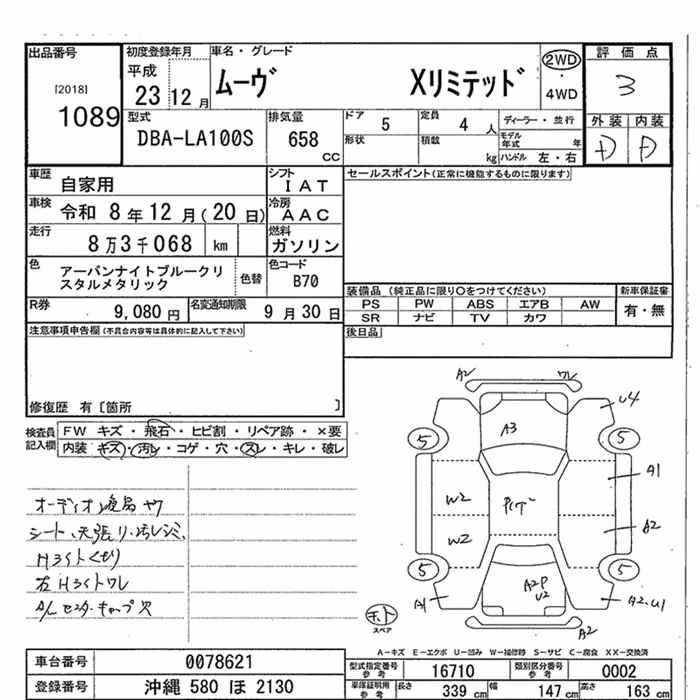 出品番号 初度登録年月 車名・グレード 評価点
[2018] 平成 ムーヴ Xリミテッド 2WD 3
1089 23 12月 ・ 4WD 外装 内装
D D
型式 排気量 ドア 5 定員 4人 ディーラー・並行
DBA-LA100S 658 CC 形状 積載 kg モデル年式 年
ハンドル 左・右
車歴 自家用 シフト IAT セールスポイント(正常に機能するものに限ります)
車検 令和 8年12月(20日) 冷房 AAC
走行 8万3千068 km 燃料 ガソリン
色 アーバンナイトブルークリ 色替 色コード B70
スタルメタリック
装備品 (純正品に限り○をつけてください) 新車保証書
PS PW ABS エアB AW 有・無
SR ナビ TV カワ
R券 9,080円 名変通知期限 9月30日 後日品
注意事項申告欄(不具合内容等は具体的に記入して下さい)
修復歴 有〔箇所 〕
検査員記入欄 FW キズ・飛石・ヒビ割・リペア跡・×要
内装 キズ・汚レ・コゲ・穴・スレ・キレ・破レ
シート、天張り
H3イトくもり
左H3イトワレ
A/Wセンターキャップ欠
A2 ワレ
U4
A3
5 5
A1
W2
W2 A2
5 5
A2P
U2
A1 A2.U1
A2
スペア
A－キズ E－エクボ U－凹み W－補修跡 S－サビ C－腐食 XX－交換済
車台番号 0078621 型式指定番号 16710 類別区分番号 0002
参考 参考
登録番号 沖縄 580 ほ 2130 車庫証明用 長さ 339 cm 幅 147 cm 高さ 163 cm
参考